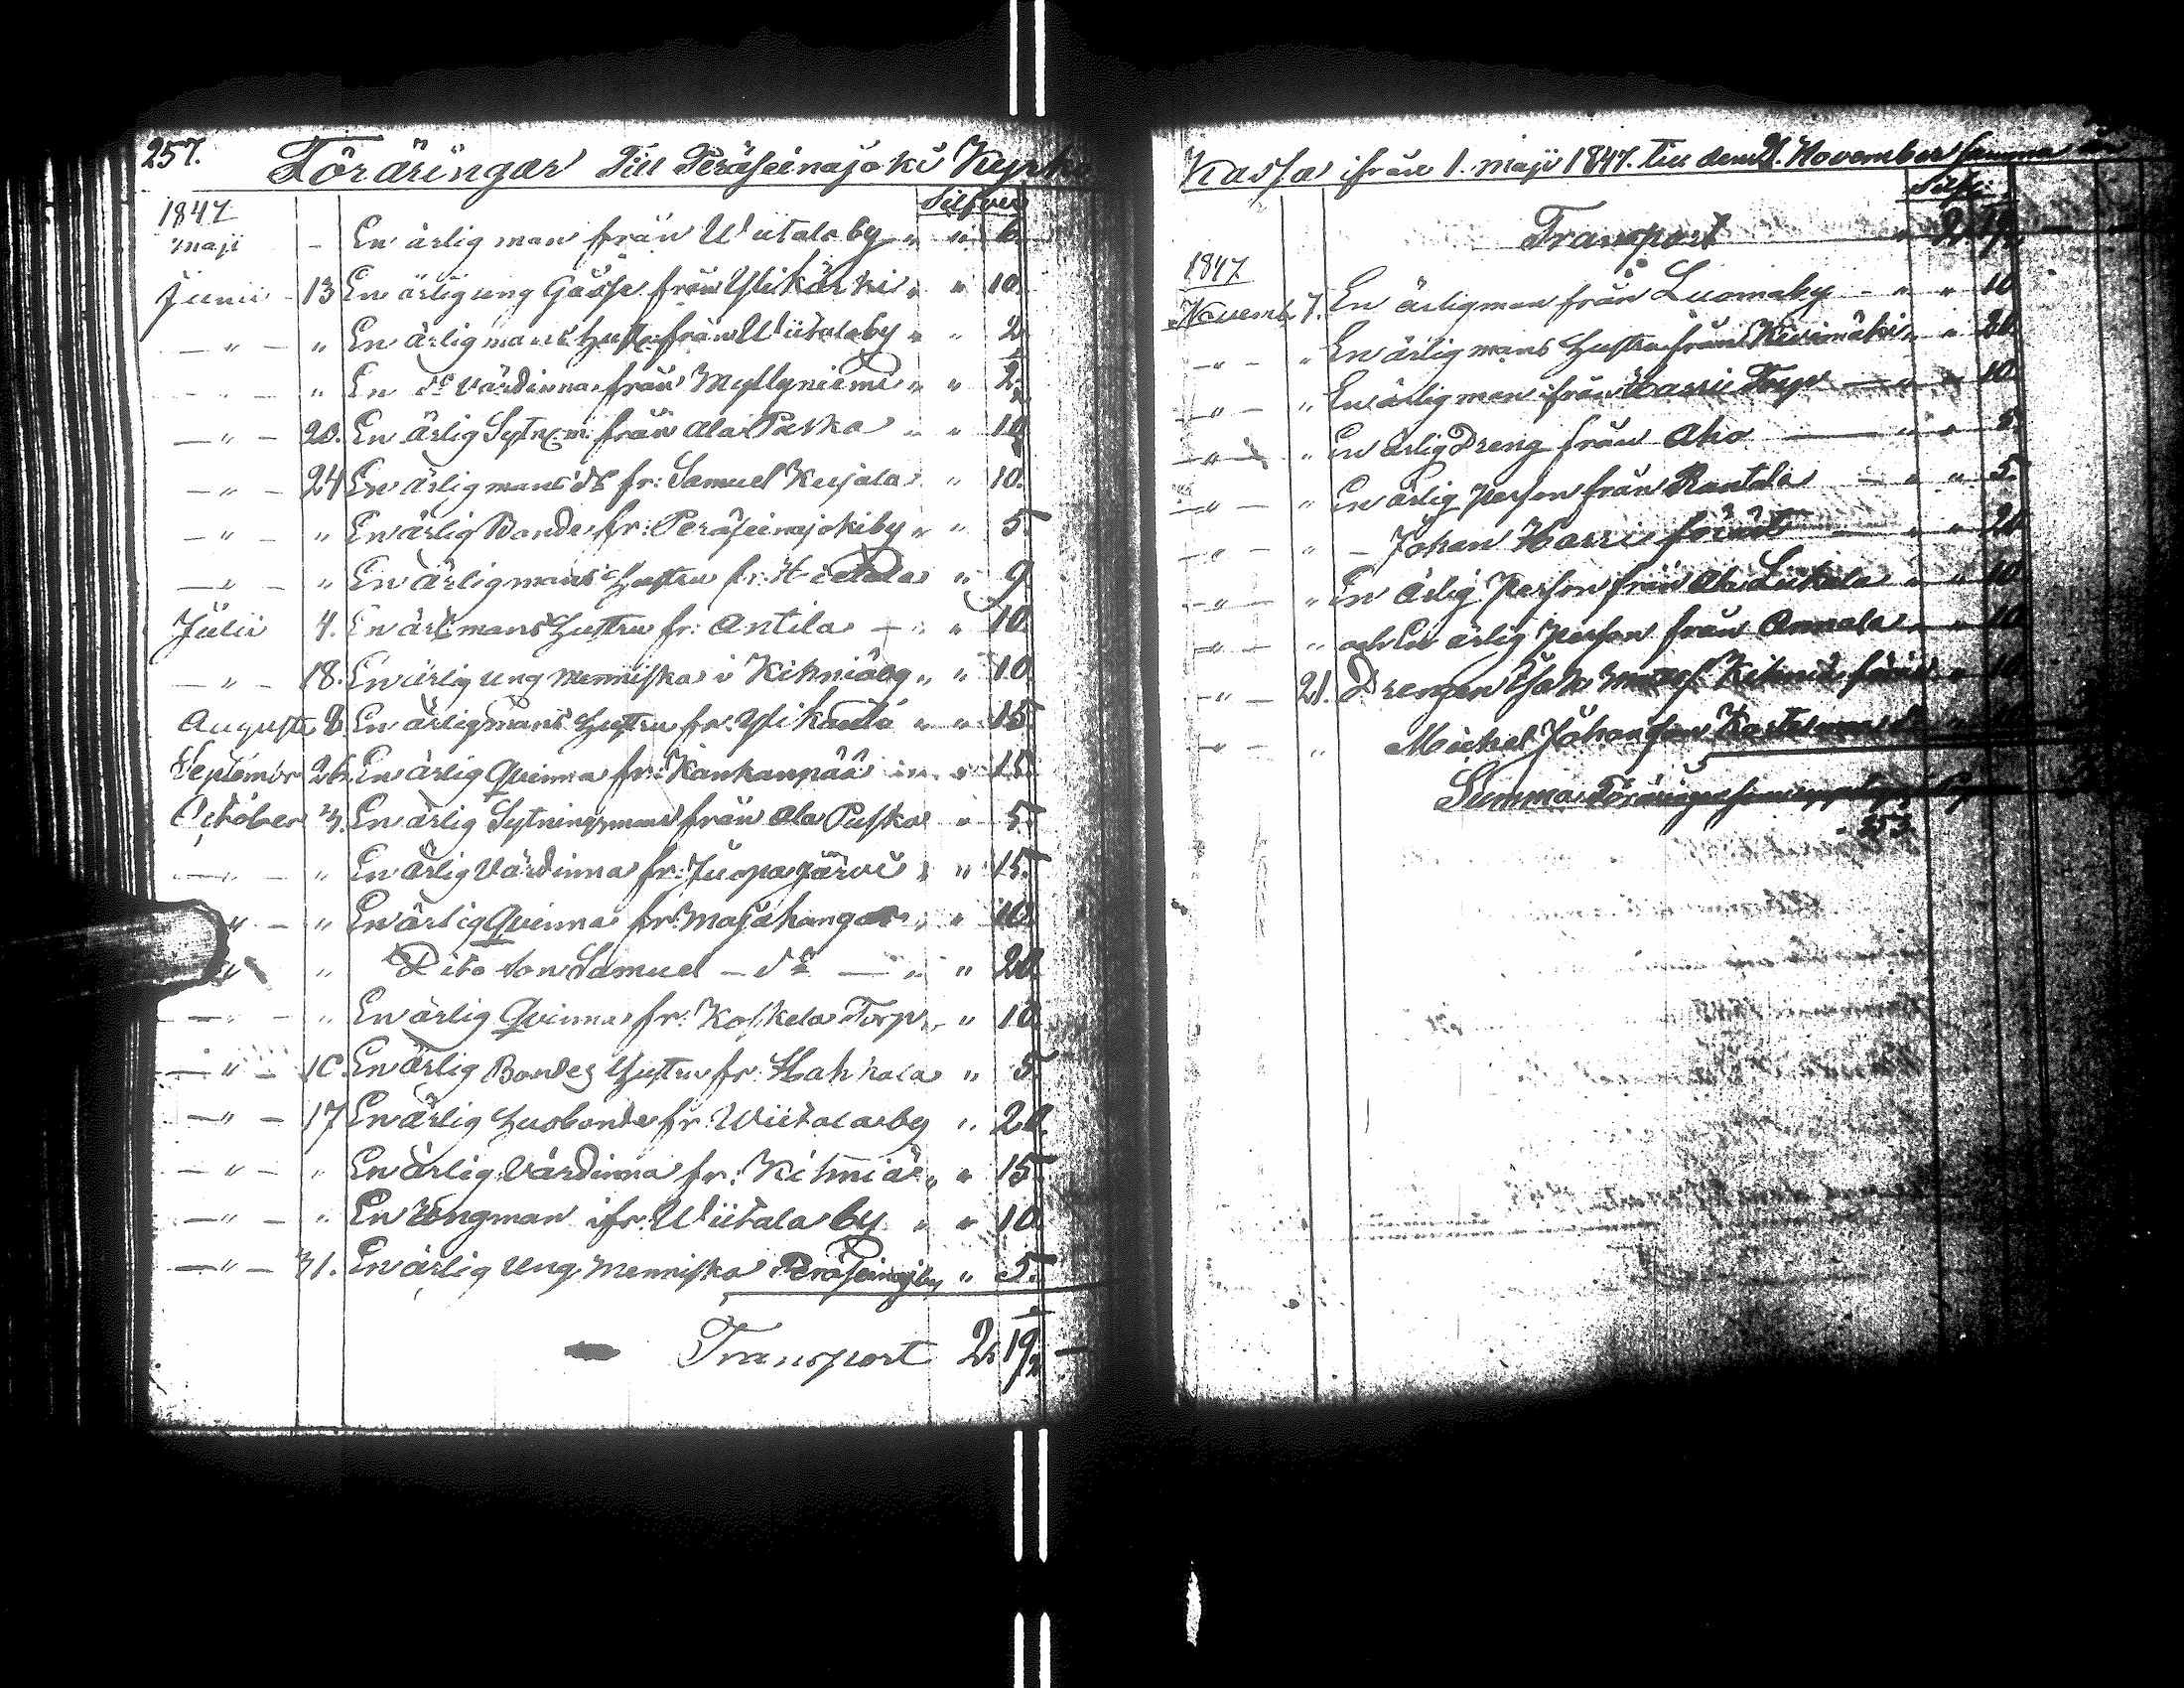 257. Föräringar Till Peräseinäjoki Kyrko
Silfver
1847
Maji - En ärlig man från Wiitala by " " 6.
Junii 13 En ärlig ung Gåsse från Ylikärki " " 10.
" " En ärlig mans hustru från Wiitala by " " 2
" " En do Värdinna från Myllyniemi " " 2 1/2
" 20. En ärlig Sytn:m. från Ala Puska " " 10
" 24 En ärlig mans ds fr: Samuel Kujala " 10.
" " En ärlig Bonde fr: Peräseinajoki by " " 5
" " En ärlig mans hustru fr: Hietala " 9
Julii 4. En ärl: mans hustru fr: Antila — " " 10.
" 18. En ärlig ung Menniska i Kihniä by " " 10
Augusti 8. En ärlig mans hustru fr: Ylikauto " " 15
Septembr 26. En ärlig Qvinna fr: Kankanpää " " 15.
October 3. En ärlig Sytningsman från Ala Puska " 5
" " En ärlig Värdinna fr: Juopajärvi " " 15
" " En ärlig Qvinna fr: Majahanga " " 10.
" " Dito son Samuel — do — " " 20
" " En ärlig Qvinna fr: Koskela Torp " " 10
" 10. En ärlig Bondes hustru fr: Hahkala " 5
" 17 En ärlig husbonde fr: Wiitala by " 20.
" " En ärlig Värdinna fr: Kihniä " " 15
" " En Ungman ifr: Wiitala by " " 10
" 31. En ärlig Ung Menniska Peräseinaj by " 5.
Transport 2. 19 1/2 —
Kassa ifrån 1. Maji 1847. till den 21. November samma
Silf:
Transport 2. 19 1/2
1847
Novemb. 7. En ärlig man från Luomaby - " " 10
" " En ärlig mans hustru från Kivimäki " " 20
" " En ärlig man ifrån Harri Torp — " " 10.
" " En ärlig Dreng från Aho — " " 5.
" " En ärlig Person från Rantala — " " 5.
" " - Johan Harri förärt — " " 20
" " En ärlig Person från Ala Liikala " " 10
" " och En ärlig Person från Annala " " 10
" 21. Drengen Isak Kihniä förärt " 10
" " Michel Johansson
Summa Föräringar
253.